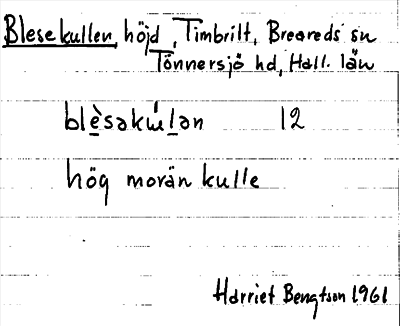 Blesekullen, höjd, Timbrilt, Breareds sn
Tönnersjö hd, Hall. län
blèsakulan 12
hög morän kulle
Harriet Bengtson 1961